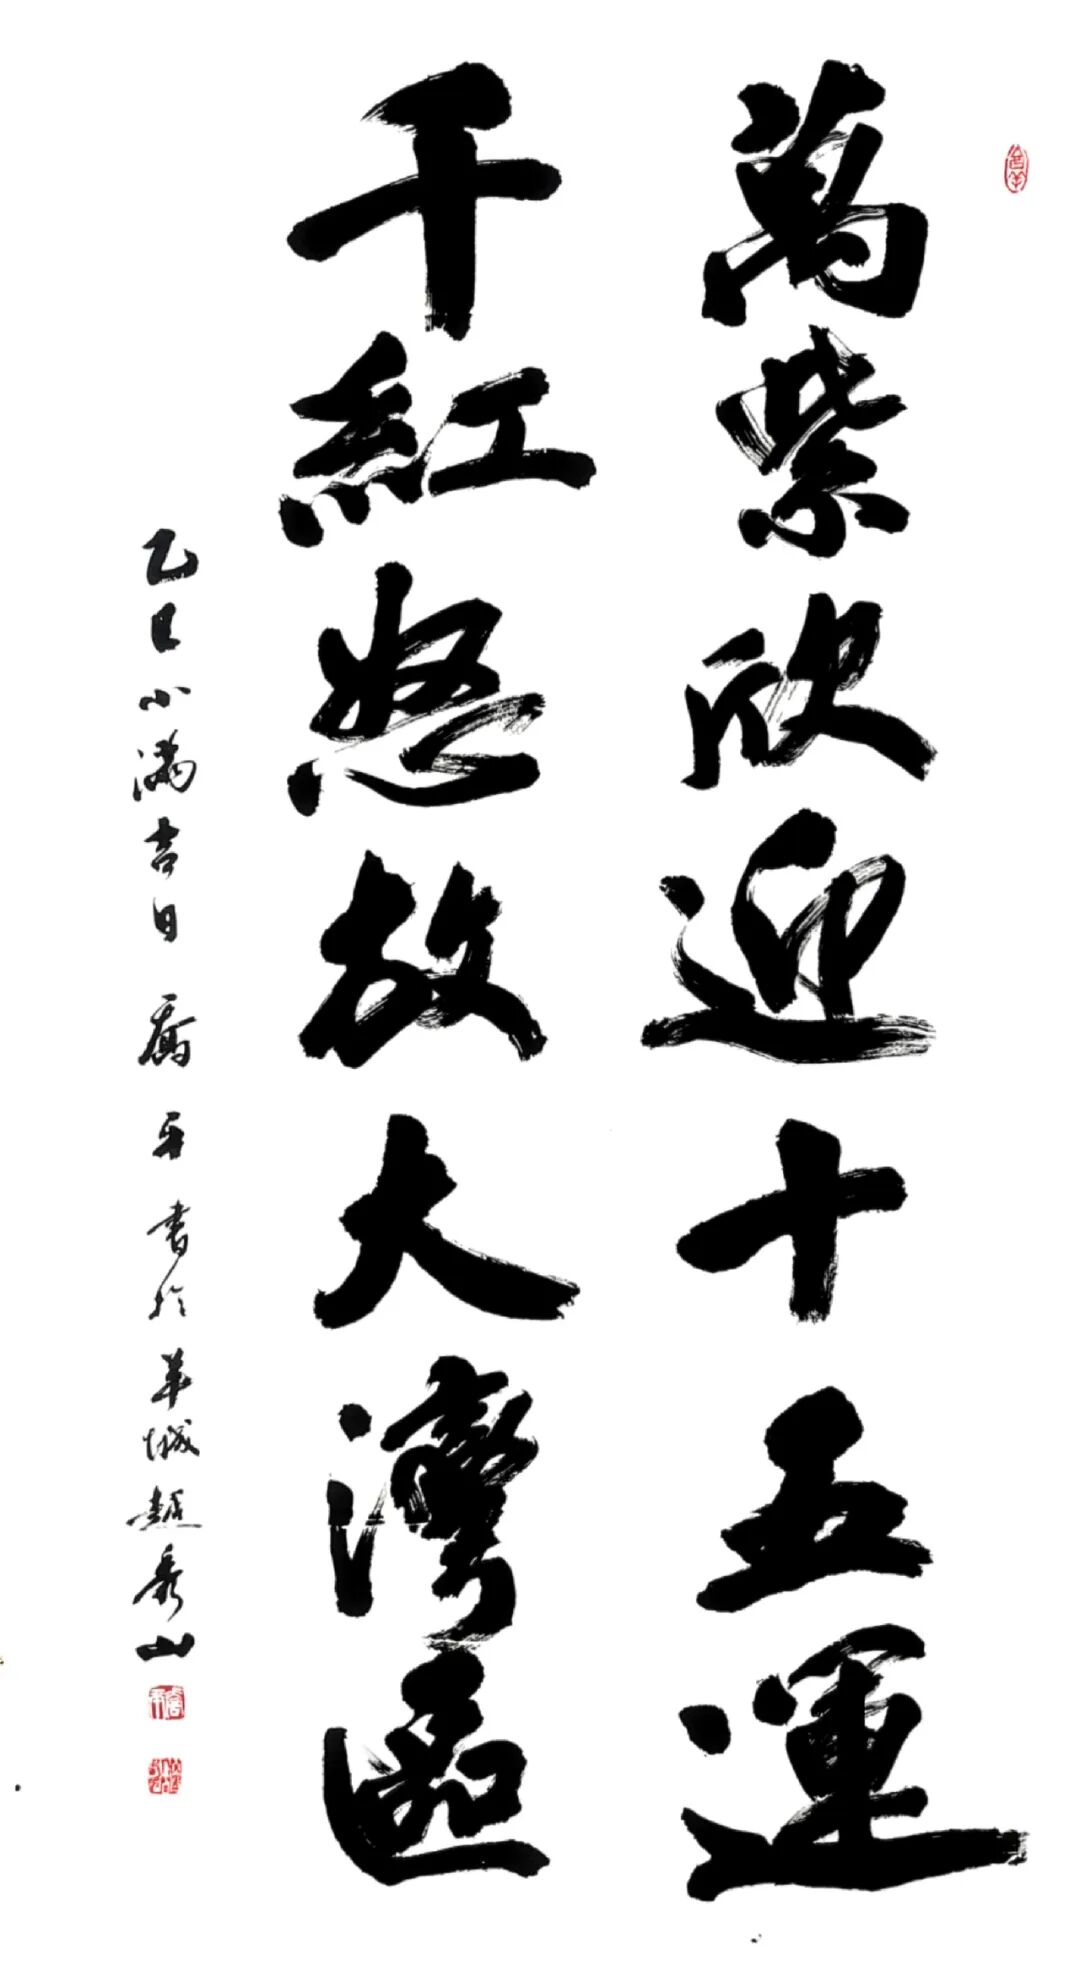 萬紫欣迎十五運
千紅怒放大灣區
乙巳小滿吉日喬平書於羊城越秀山